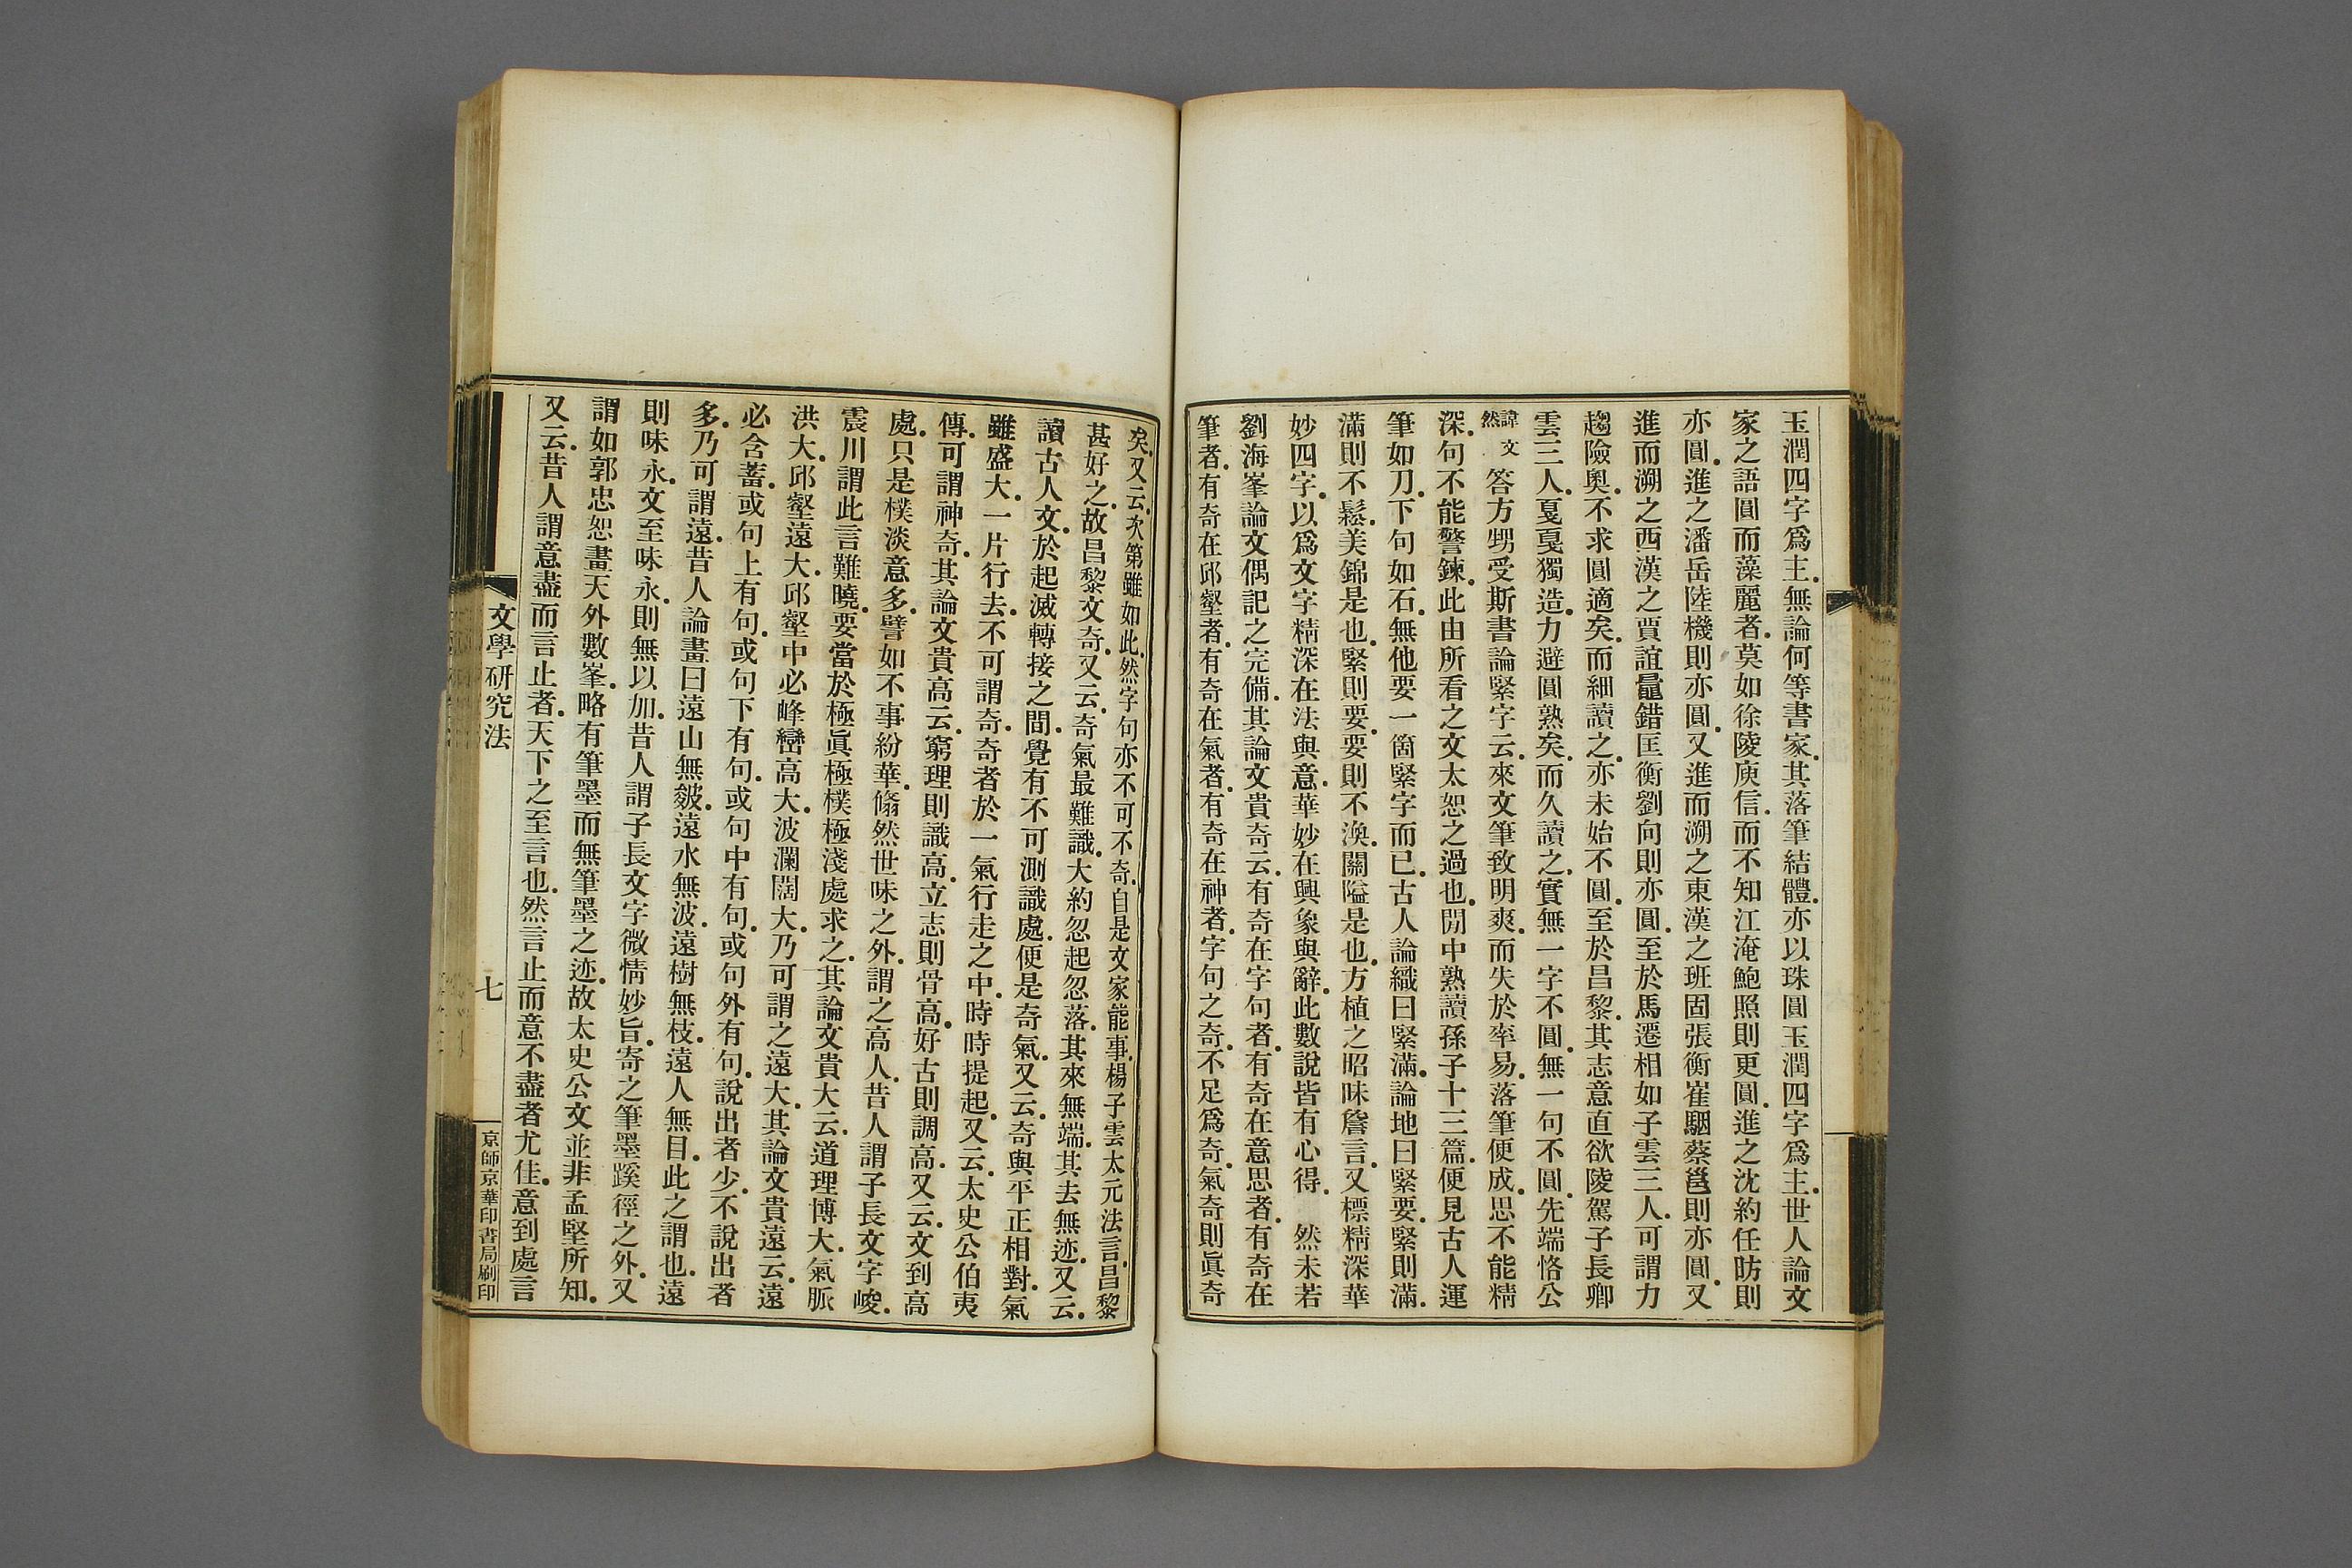 玉潤四字爲主．無論何等書家．其落筆結體．亦以珠圓玉潤四字爲主．世人論文
家之語圓而藻麗者．莫如徐陵庾信．而不知江淹鮑照則更圓．進之沈約任昉則
亦圓．進之潘岳陸機則亦圓．又進而溯之東漢之班固張衡崔駰蔡邕則亦圓．又
進而溯之西漢之賈誼鼂錯匡衡劉向則亦圓．至於馬遷相如子雲三人．可謂力
趨險奧．不求圓適矣．而細讀之．亦未始不圓．至於昌黎．其志意直欲陵駕子長卿
雲三人．戛戛獨造．力避圓熟矣．而久讀之．實無一字不圓．無一句不圓．先端恪公
諱文然 答方甥受斯書論緊字云．來文筆致明爽．而失於率易．落筆便成．思不能精
深．句不能警鍊．此由所看之文太恕之過也．閒中熟讀孫子十三篇．便見古人運
筆如刀．下句如石．無他要一箇緊字而已．古人論織曰緊滿．論地曰緊要．緊則滿．
滿則不鬆．美錦是也．緊則要．要則不渙．關隘是也．方植之昭昧詹言．又標精深華
妙四字．以爲文字精深在法與意．華妙在興象與辭．此數說皆有心得．　然未若
劉海峯論文偶記之完備．其論文貴奇云．有奇在字句者．有奇在意思者．有奇在
筆者．有奇在邱壑者．有奇在氣者．有奇在神者．字句之奇．不足爲奇．氣奇則眞奇
矣．又云．次第雖如此．然字句亦不可不奇．自是文家能事．楊子雲太元法言．昌黎
甚好之．故昌黎文奇．又云．奇氣最難識．大約忽起忽落．其來無端．其去無迹．又云．
讀古人文．於起滅轉接之間．覺有不可測識處．便是奇氣．又云．奇與平正相對．氣
雖盛大．一片行去．不可謂奇．奇者於一氣行走之中．時時提起．又云．太史公伯夷
傳．可謂神奇．其論文貴高云．窮理則識高．立志則骨高．好古則調高．又云．文到高
處．只是樸淡意多．譬如不事紛華．翛然世味之外．謂之高人．昔人謂子長文字峻．
震川謂此言難曉．要當於極眞極樸極淺處求之．其論文貴大云．道理博大．氣脈
洪大．邱壑遠大．邱壑中必峰巒高大．波瀾闊大．乃可謂之遠大．其論文貴遠云．遠
必含蓄．或句上有句．或句下有句．或句中有句．或句外有句．說出者少．不說出者
多．乃可謂遠．昔人論畫曰遠山無皴．遠水無波．遠樹無枝．遠人無目．此之謂也．遠
則味永．文至味永．則無以加．昔人謂子長文字微情妙旨．寄之筆墨蹊徑之外．又
謂如郭忠恕畫天外數峯．略有筆墨而無筆墨之迹．故太史公文並非孟堅所知．
又云．昔人謂意盡而言止者．天下之至言也．然言止而意不盡者尤佳．意到處言
文學研究法
七
京師京華印書局刷印